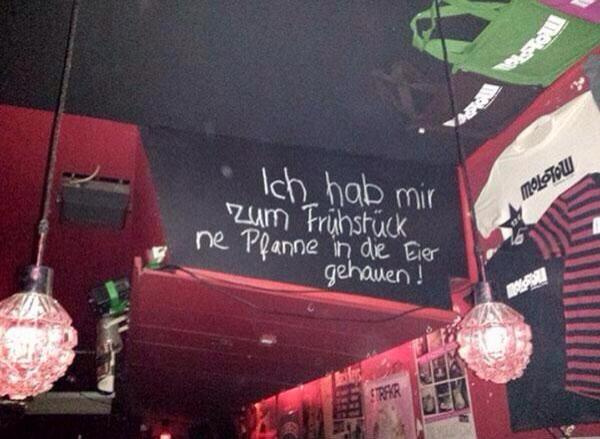 Ich hab mir
zum Frühstück
ne Pfanne in die Eier
gehauen!
MOLOTOW
MOLOTOW
MOLOTOW
MOLOTOW
STRFKR